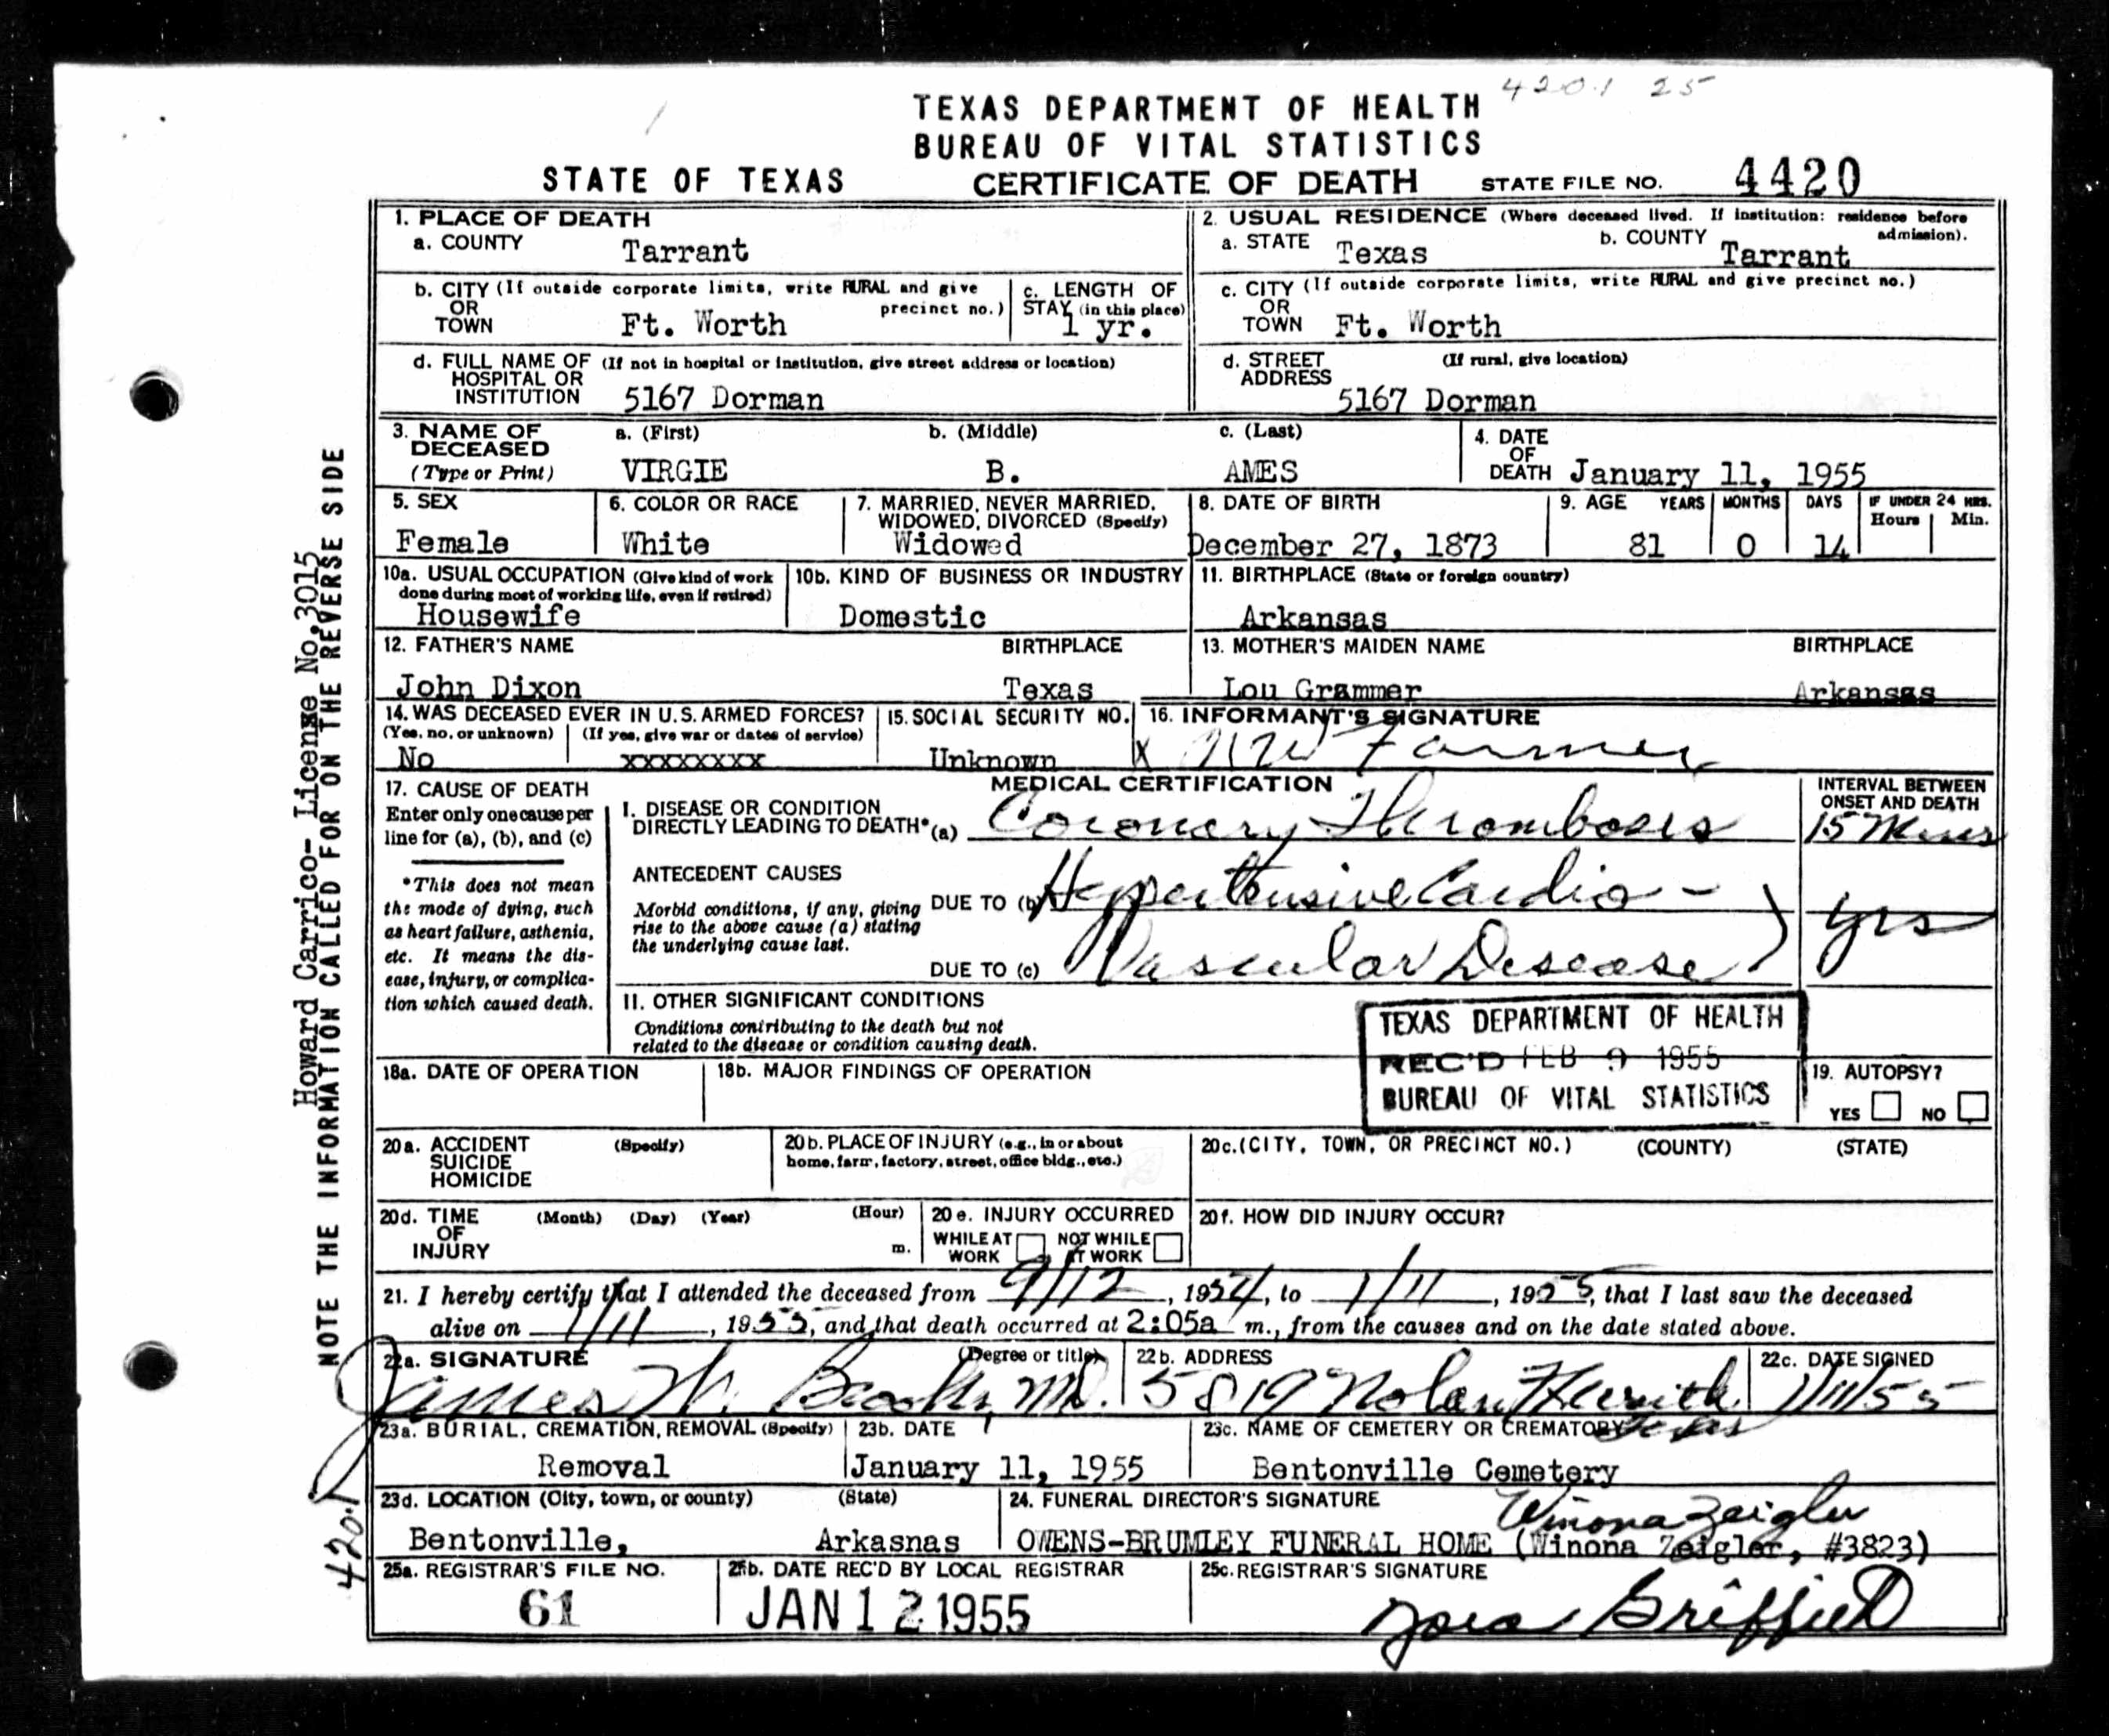 4201 25
TEXAS DEPARTMENT OF HEALTH
BUREAU OF VITAL STATISTICS
STATE OF TEXAS CERTIFICATE OF DEATH STATE FILE NO. 4420
1. PLACE OF DEATH
a. COUNTY Tarrant
2. USUAL RESIDENCE (Where deceased lived. If institution: residence before admission).
a. STATE Texas b. COUNTY Tarrant
b. CITY (If outside corporate limits, write RURAL and give precinct no.)
OR
TOWN Ft. Worth
c. LENGTH OF
STAY (in this place)
1 yr.
c. CITY (If outside corporate limits, write RURAL and give precinct no.)
OR
TOWN Ft. Worth
d. FULL NAME OF (If not in hospital or institution, give street address or location)
HOSPITAL OR
INSTITUTION 5167 Dorman
d. STREET (If rural, give location)
ADDRESS
5167 Dorman
3. NAME OF a. (First) b. (Middle) c. (Last)
DECEASED
(Type or Print) VIRGIE B. AMES
4. DATE
OF
DEATH January 11, 1955
5. SEX
Female
6. COLOR OR RACE
White
7. MARRIED, NEVER MARRIED,
WIDOWED, DIVORCED (Specify)
Widowed
8. DATE OF BIRTH
December 27, 1873
9. AGE YEARS MONTHS DAYS IF UNDER 24 HRS.
Hours Min.
81 0 14
10a. USUAL OCCUPATION (Give kind of work
done during most of working life, even if retired)
Housewife
10b. KIND OF BUSINESS OR INDUSTRY
Domestic
11. BIRTHPLACE (State or foreign country)
Arkansas
12. FATHER'S NAME BIRTHPLACE
John Dixon Texas
13. MOTHER'S MAIDEN NAME BIRTHPLACE
Lou Grammer Arkansas
14. WAS DECEASED EVER IN U.S. ARMED FORCES?
(Yes, no, or unknown) (If yes, give war or dates of service)
No xxxxxxxx
15. SOCIAL SECURITY NO.
Unknown
16. INFORMANT'S SIGNATURE
X Farmer
MEDICAL CERTIFICATION
17. CAUSE OF DEATH
Enter only one cause per
line for (a), (b), and (c)
*This does not mean
the mode of dying, such
as heart failure, asthenia,
etc. It means the dis-
ease, injury, or complica-
tion which caused death.
I. DISEASE OR CONDITION
DIRECTLY LEADING TO DEATH* (a) Coronary Thrombosis
INTERVAL BETWEEN
ONSET AND DEATH
15 Mins
ANTECEDENT CAUSES
Morbid conditions, if any, giving
rise to the above cause (a) stating
the underlying cause last.
DUE TO (b) Hypertensive Cardio-
DUE TO (c) Vascular Disease
yrs
II. OTHER SIGNIFICANT CONDITIONS
Conditions contributing to the death but not
related to the disease or condition causing death.
TEXAS DEPARTMENT OF HEALTH
REC'D FEB 9 1955
BUREAU OF VITAL STATISTICS
18a. DATE OF OPERATION
18b. MAJOR FINDINGS OF OPERATION
19. AUTOPSY?
YES NO
20a. ACCIDENT (Specify)
SUICIDE
HOMICIDE
20b. PLACE OF INJURY (e.g., in or about
home, farm, factory, street, office bldg., etc.)
20c. (CITY, TOWN, OR PRECINCT NO.) (COUNTY) (STATE)
20d. TIME (Month) (Day) (Year) (Hour)
OF
INJURY m.
20e. INJURY OCCURRED
WHILE AT NOT WHILE
WORK AT WORK
20f. HOW DID INJURY OCCUR?
21. I hereby certify that I attended the deceased from 9/12, 1954, to 1/11, 1955, that I last saw the deceased
alive on 1/11, 1955, and that death occurred at 2:05a m., from the causes and on the date stated above.
22a. SIGNATURE (Degree or title)
James W. Brooks, MD.
22b. ADDRESS
5819 Nolan Ft Worth Texas
22c. DATE SIGNED
1/11/55
23a. BURIAL, CREMATION, REMOVAL (Specify)
Removal
23b. DATE
January 11, 1955
23c. NAME OF CEMETERY OR CREMATORY
Bentonville Cemetery
23d. LOCATION (City, town, or county) (State)
Bentonville, Arkasnas
24. FUNERAL DIRECTOR'S SIGNATURE
Winona Zeigler
OWENS-BRUMLEY FUNERAL HOME (Winona Zeigler, #3823)
25a. REGISTRAR'S FILE NO.
61
25b. DATE REC'D BY LOCAL REGISTRAR
JAN 12 1955
25c. REGISTRAR'S SIGNATURE
Griffield
Howard Carrico- License No.3015
NOTE THE INFORMATION CALLED FOR ON THE REVERSE SIDE
420.1